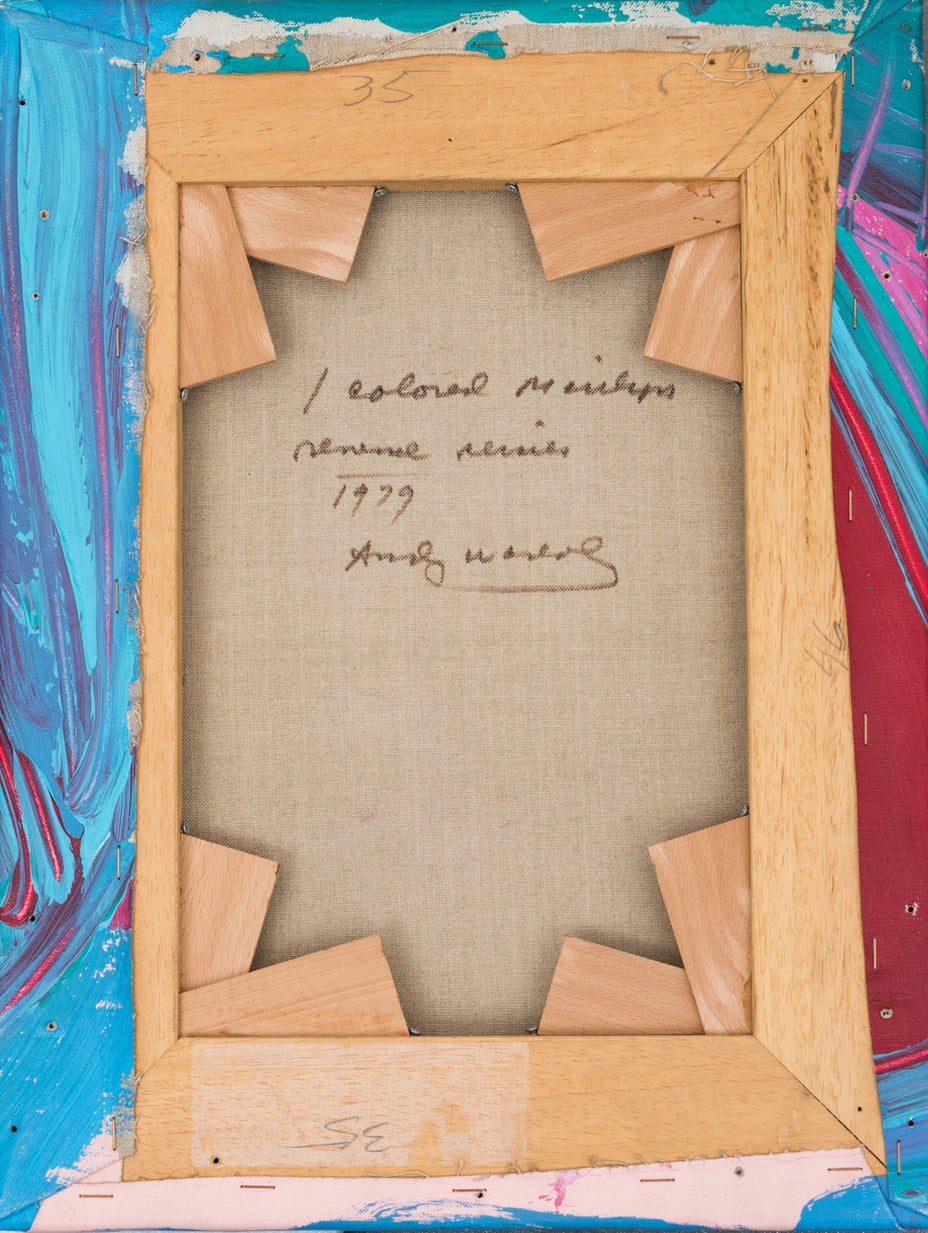 35
1 colored marilyn
series
1979
Andy Warhol
46
35